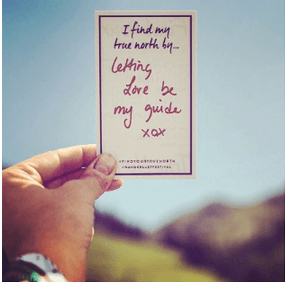 I find my
true north by...
letting
Love be
my guide
xox
#FINDYOURTRUENORTH
#WANDERLUSTFESTIVAL